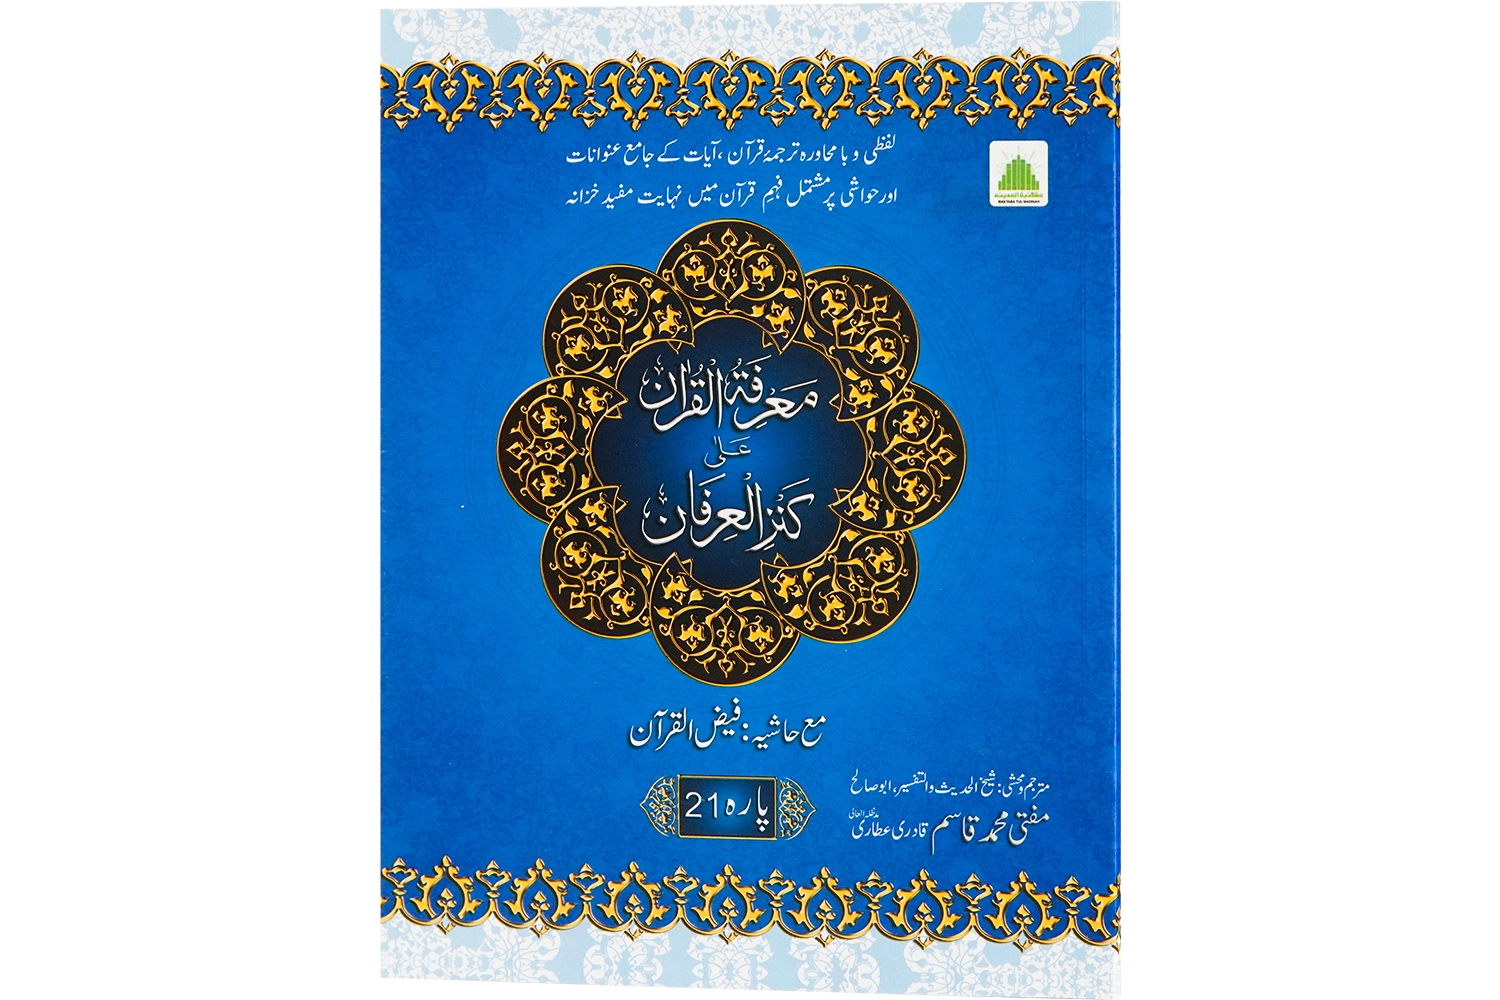 لفظی و بامحاورہ ترجمۂ قرآن، آیات کے جامع عنوانات
اور حواشی پر مشتمل فہمِ قرآن میں نہایت مفید خزانہ
مکتبۃ المدینہ
MAKTABA TUL MADINAH
مَعْرِفَۃُ الْقُرْاٰن
عَلٰی
کَنْزِ الْعِرْفَان
مع حاشیہ: فیض القرآن
پارہ 21
مترجم و محشی: شیخ الحدیث والتفسیر، ابو صالح
مفتی محمد قاسم قادری عطاری مدظلہ العالی